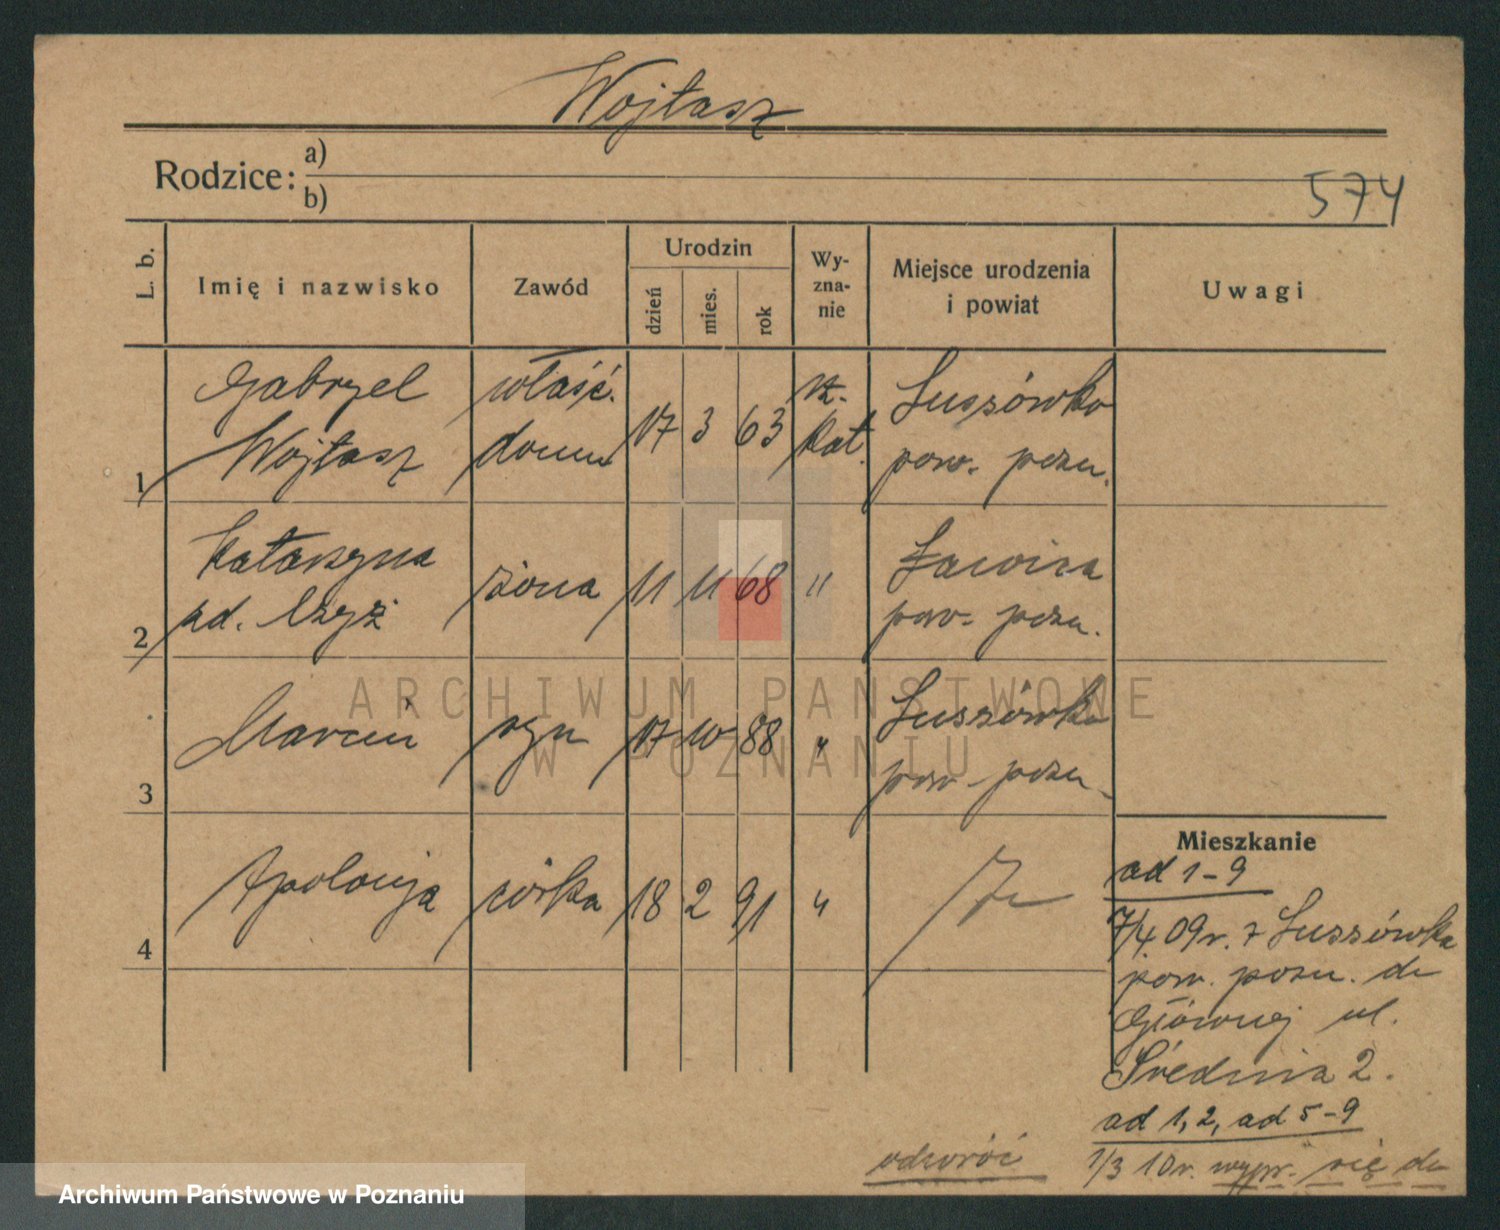 Wojtasz
Rodzice: a)
b)
574
L. b.
Imię i nazwisko
Zawód
Urodzin
dzień
mies.
rok
Wy-
zna-
nie
Miejsce urodzenia
i powiat
Uwagi
1 Gabryel Wojtasz właść. domu 17 3 63 rz. kat. Lussówko pow. pozn.
2 Katarzyna ad. Czyż żona 11 11 68 " pow. pozn.
3 Marcin syn 17 10 88 " Lussówko pow. pozn.
4 Apolonja córka 18 2 91 "
Mieszkanie
ad 1-9
7/4. 09 r. z Lussówka
pow. pozn. do
Głównej ul.
Średnia 2.
ad 1, 2, ad 5-9
1/3 10 r. wypr. się do
odwróć
ARCHIWUM PAŃSTWOWE
W POZNANIU
Archiwum Państwowe w Poznaniu